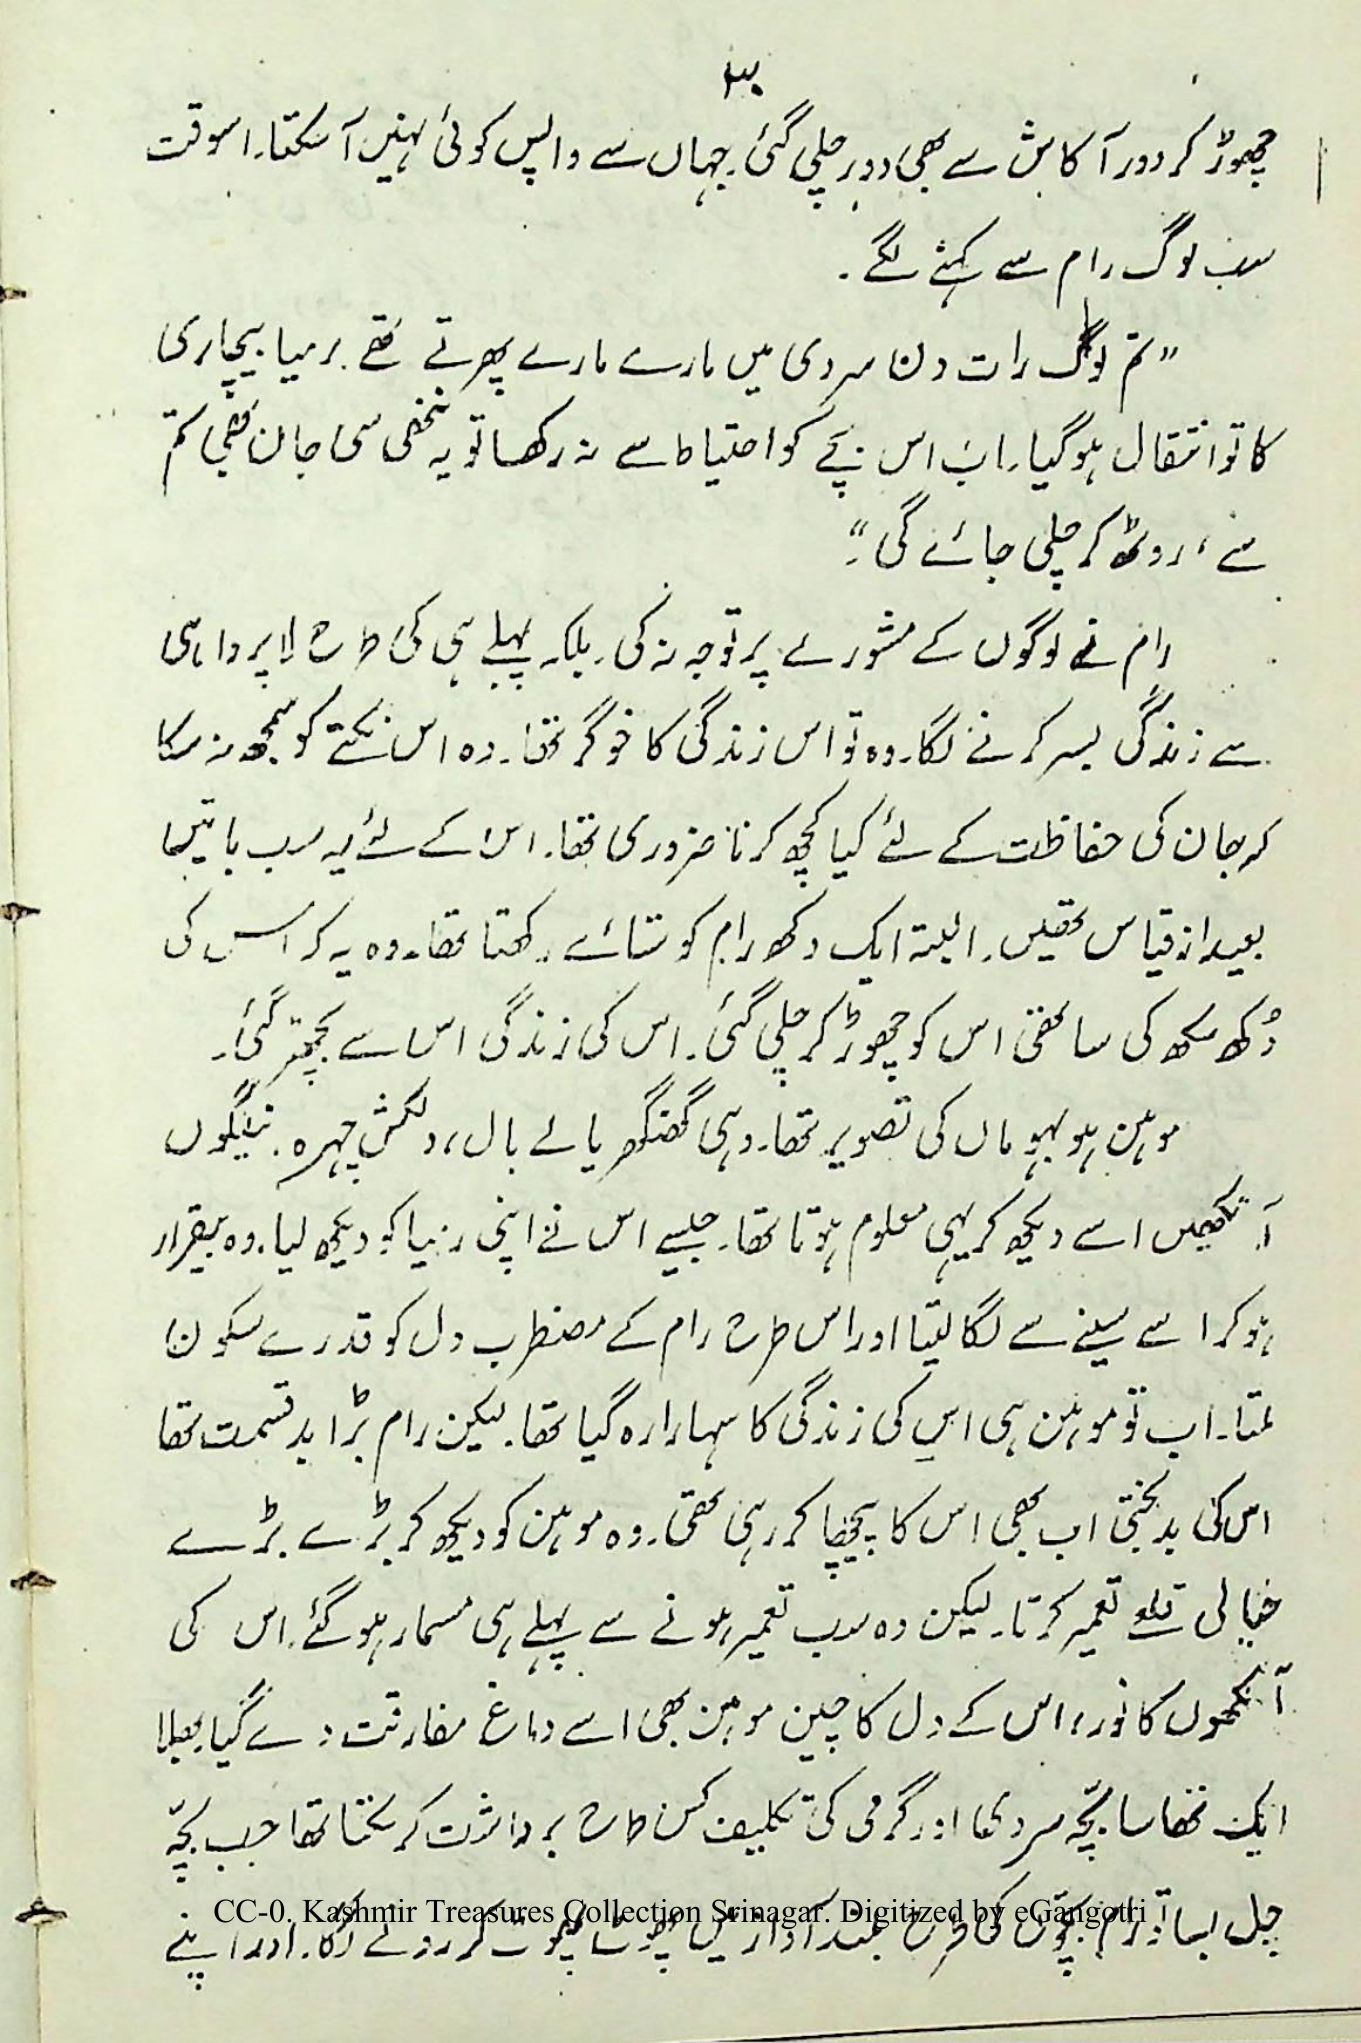 ۳۰
چھوڑ کر دور آکاش سے بھی دور چلی گئی۔ جہاں سے واپس کوئی نہیں آسکتا۔ اسوقت
سب لوگ رام سے کہنے لگے۔
"تم لوگ رات دن سردی میں مارے مارے پھرتے تھے۔ رمیا بیچاری
کا تو انتقال ہوگیا۔ اب اس بچے کو احتیاط سے نہ رکھا تو یہ ننھی سی جان بھی تم
سے، روٹھ کر چلی جائے گی"۔
رام نے لوگوں کے مشورے پر توجہ نہ کی۔ بلکہ پہلے ہی کی طرح لاپرواہی
سے زندگی بسر کرنے لگا۔ وہ تو اس زندگی کا خوگر تھا۔ وہ اس نکتے کو سمجھ نہ سکا
کہ جان کی حفاظت کے لئے کیا کچھ کرنا ضروری تھا۔ اس کے لئے یہ سب باتیں
بعید از قیاس تھیں۔ البتہ ایک دکھ رام کو ستائے رکھتا تھا۔ وہ یہ کہ اس کی
دُکھ سکھ کی ساتھی اس کو چھوڑ کر چلی گئی۔ اس کی زندگی اس سے بچھڑ گئی۔
موہن ہو بہو ماں کی تصویر تھا۔ وہی گھنگھریالے بال، دلکش چہرہ۔ نیلگوں
آنکھیں اسے دیکھ کر یہی معلوم ہوتا تھا۔ جیسے اس نے اپنی رمیا کو دیکھ لیا۔ وہ بیقرار
ہوکر اسے سینے سے لگا لیتا اور اس طرح رام کے مضطرب دل کو قدرے سکون
ملتا۔ اب تو موہن ہی اس کی زندگی کا سہارا رہ گیا تھا۔ لیکن رام بڑا بدقسمت تھا
اس کی بدبختی اب بھی اس کا پیچھا کر رہی تھی۔ وہ موہن کو دیکھ کر بڑے بڑے
خیالی قلعے تعمیر کرتا۔ لیکن وہ سب تعمیر ہونے سے پہلے ہی مسمار ہوگئے۔ اس کی
آنکھوں کا نور، اس کے دل کا چین موہن بھی اسے داغ مفارقت دے گیا۔ بھلا
ایک ننھا سا بچّہ سردی اور گرمی کی تکلیف کس طرح برداشت کر سکتا تھا جب بچّہ
چل بسا تو رام بچوّں کی طرح بلند آواز میں پھوٹ پھوٹ کر رونے لگا۔ اور اپنے
CC-0. Kashmir Treasures Collection Srinagar. Digitized by eGangotri